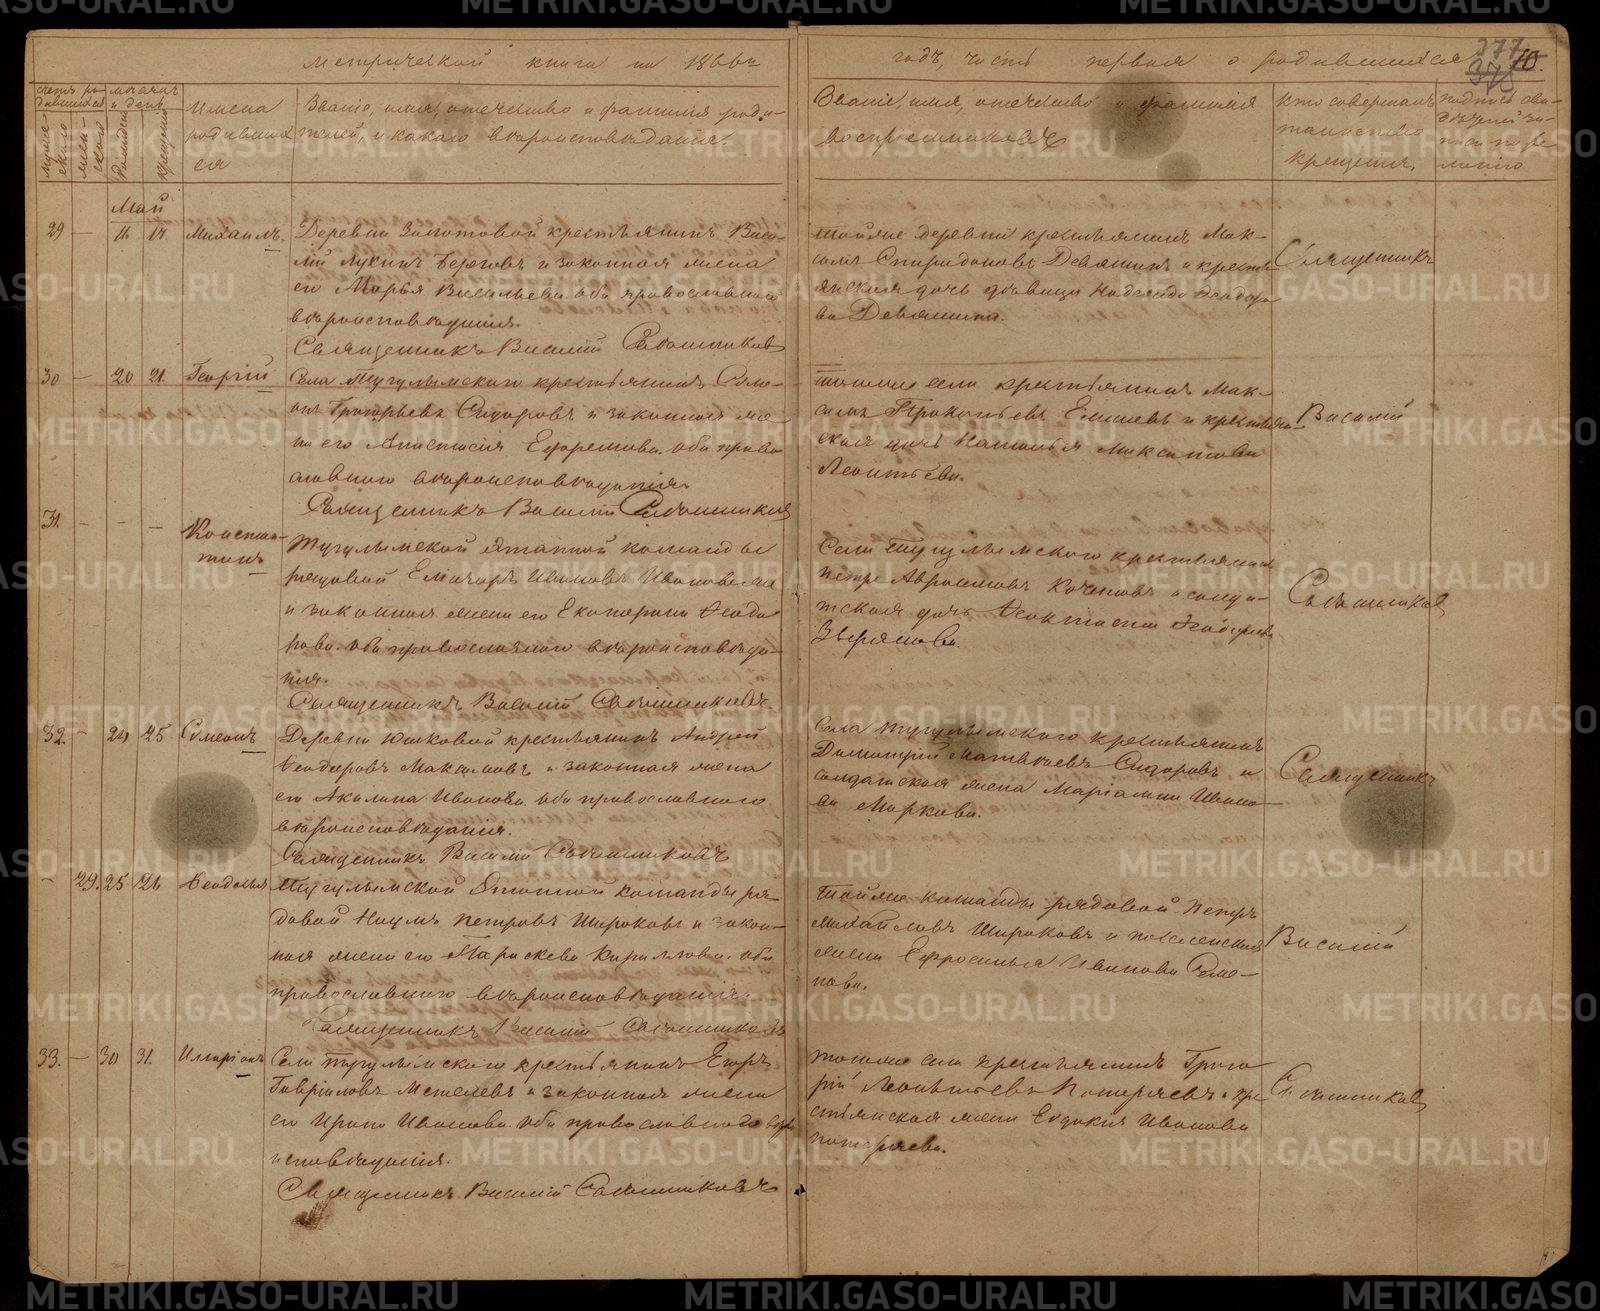 Метрической книги на 1866й
годъ, часть первая о родившихся
377
370
10.
счетъ ро-
дившихся
мужес-
каго
женс-
каго
мѣсяцъ
и день
рожденія
крещенія
Имена
родивших
ся
Званіе, имя, отечество и фамилія роди-
телей, и какого вѣроисповѣданія.
Званіе, имя, отечество и фамилія
воспріемниковъ
Кто совершалъ
таинство
крещенія.
Май
29 — 14 Михаилъ.
Деревни Золотовой крестьянинъ Васи-
лій Лукинъ Береговъ и законная жена
его Марья Васильева. оба православнаго
вѣроисповѣданія.
Священникъ Василій Сабашниковъ
тойже деревни крестьянинъ Мак-
симъ Спиридоновъ Девятинъ и кресть-
янская дочь дѣвица Надежда Ѳеодоро-
ва Девятина.
Священникъ
30 — 20 21. Георгій
Села Тугулымскаго крестьянинъ Семе-
онъ Григорьевъ Сидоровъ и законная же-
на его Анастасія Ефремова. оба право-
славнаго вѣроисповѣданія.
Священникъ Василій Сабашниковъ
тогоже села крестьянинъ Мак-
симъ Прокопьевъ и крестьян-
ская дочь Наталья Максимова
Леонтьева.
Василій
31. — — — Констан-
тинъ
Тугулымской этапной команды
рядовой Иванъ
и законная жена его Екатерина Ѳеодо-
рова. оба православнаго вѣроисповѣда-
нія.
Священникъ Василій Сабашниковъ.
Села Тугулымскаго крестьянинъ
Петръ Авраамовъ и солда-
тская дочь Ѳеодорова
Зверянова.
Сабашниковъ
32. — 24 25 Симеонъ
Деревни Юшковой крестьянинъ Андрей
Ѳеодоровъ Максимовъ и законная жена
его Акилина Иванова. оба православнаго
вѣроисповѣданія.
Священникъ Василій Сабашниковъ
Села Тугулымскаго крестьянинъ
Димитрій Матвѣевъ Сидоровъ и
солдатская жена Маріамна Ивано-
ва Маркова.
Священникъ
— 29. 25 26 Ѳеодосья
Тугулымской Этапной команды ря-
довой Наумъ Петровъ Широковъ и закон-
ная жена его Параскева Кириллова. оба
православнаго вѣроисповѣданія.
Священникъ Василій Сабашниковъ
Тойже команды рядовой Петръ
Михайловъ Широковъ и поселенская
жена Ефросинья Иванова Семе-
нова.
Василій
33. — 30 31. Иларіонъ
Села Тугулымскаго крестьянинъ Егоръ
Гавріиловъ Метелевъ и законная жена
его Ирина Иванова. оба православнаго вѣро-
исповѣданія.
Священникъ Василій Сабашниковъ
тогоже села крестьянинъ Григо-
рій Леонтьевъ Потеряевъ и кре-
стьянская жена Евдокія Иванова
Потеряева.
Сабашниковъ
METRIKI.GASO-URAL.RU